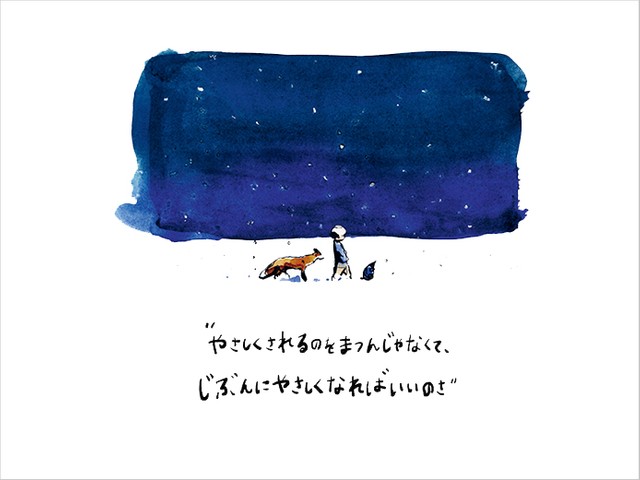 “やさしくされるのをまつんじゃなくて、
じぶんにやさしくなればいいのさ”